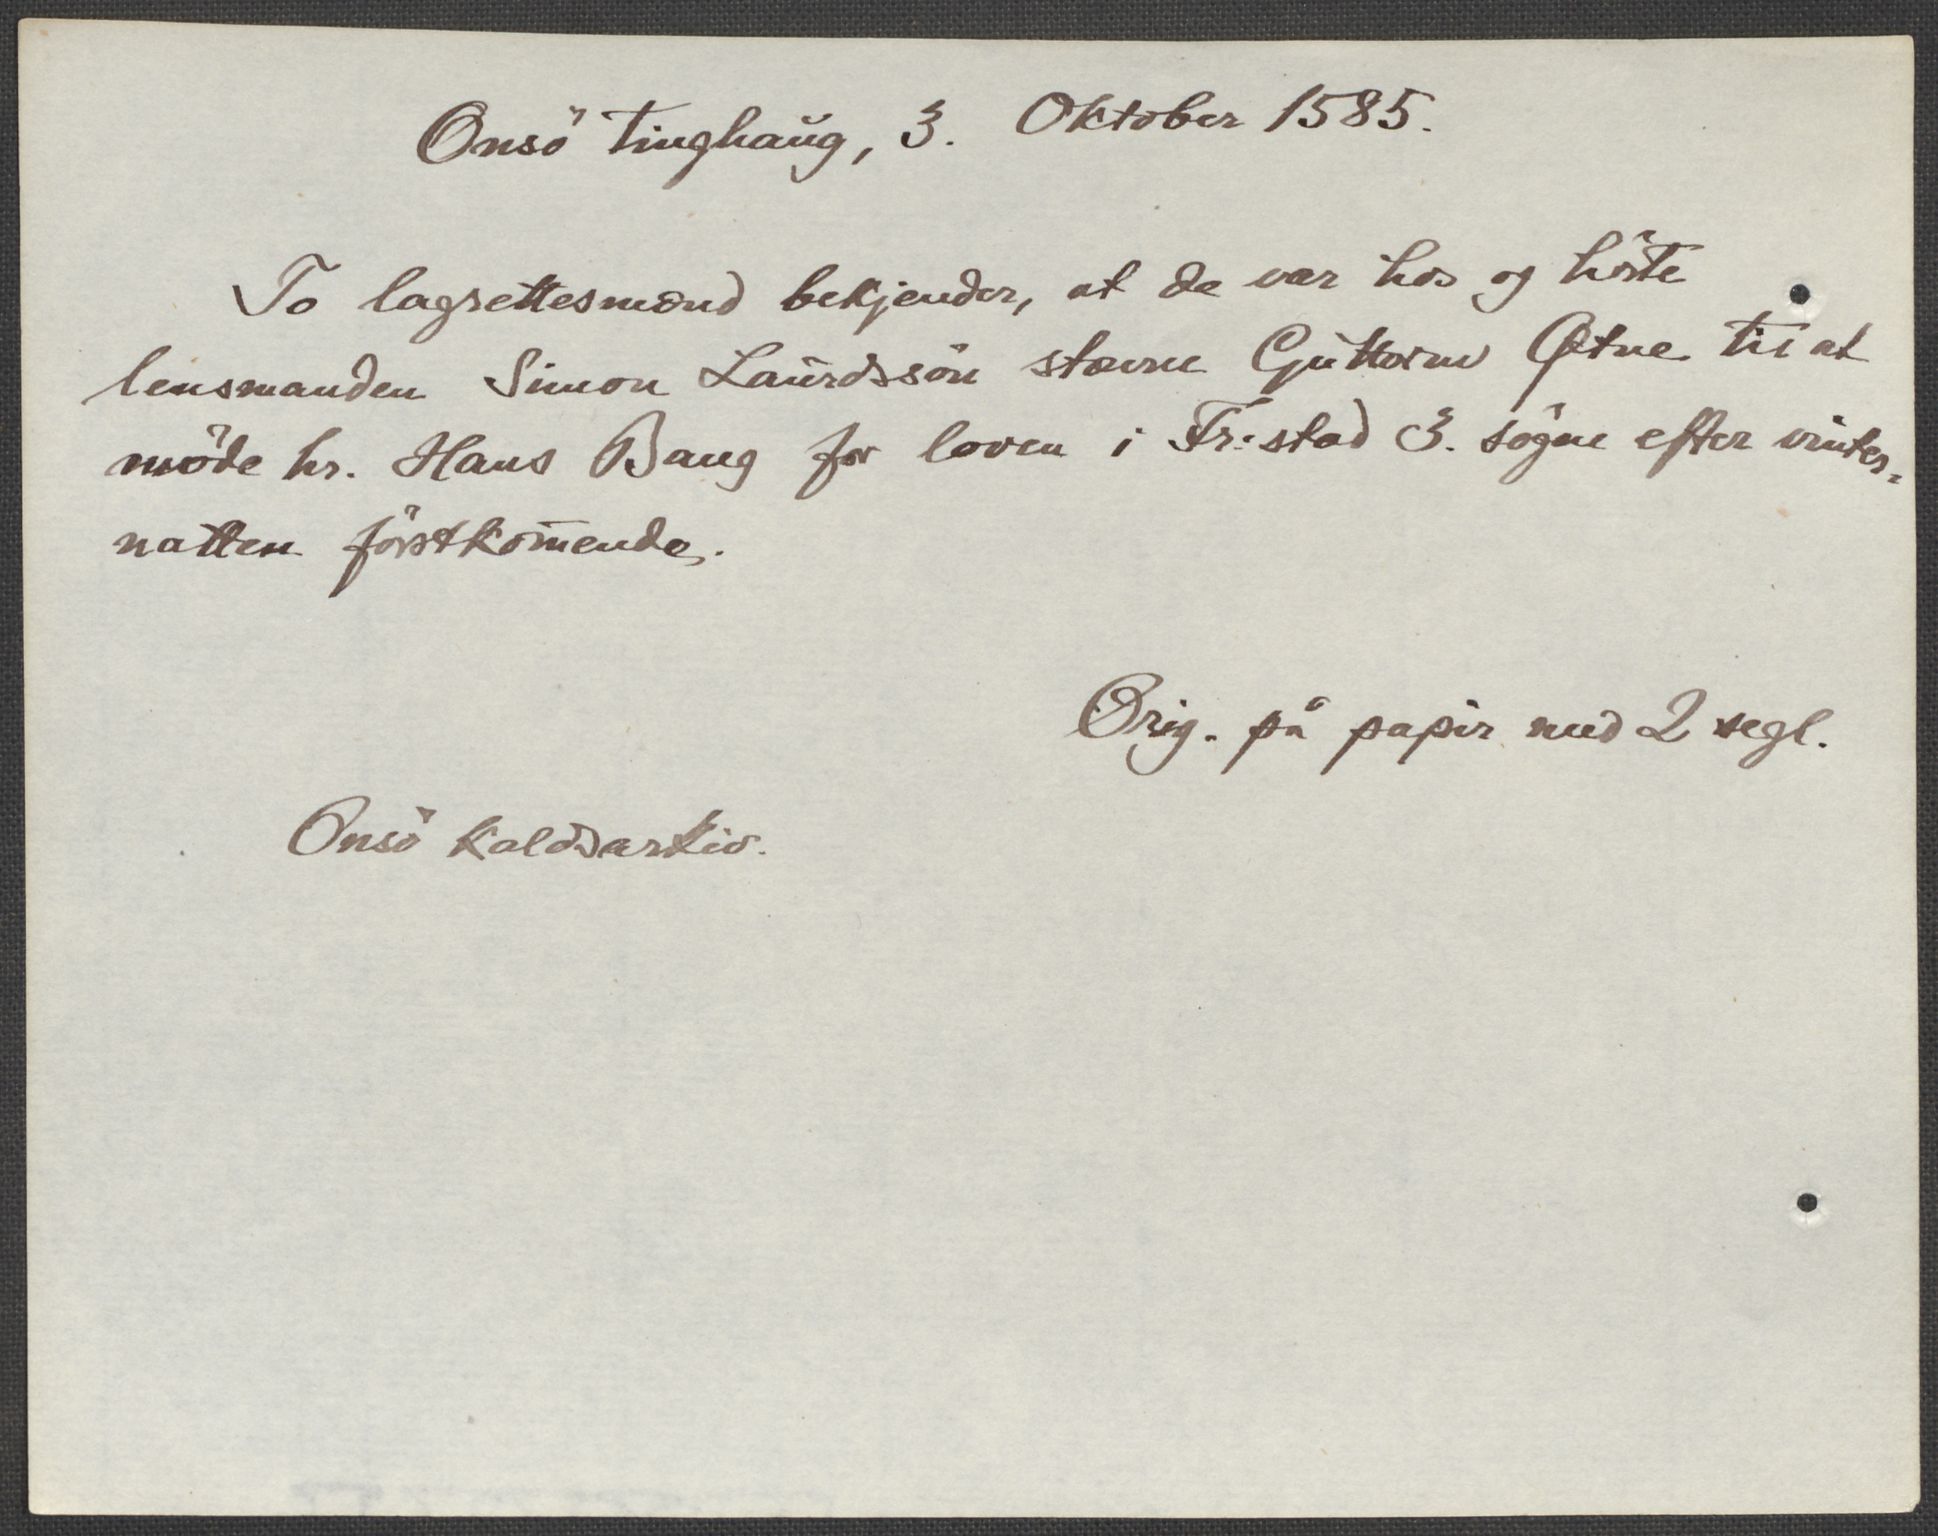 Onsö tinghaug, 3. Oktober 1585.
To lagrettesmænd bekjender, at de var hos og hörte
lensmanden Simon Laurdssön stævne Guttorm Øtne til at
möde hr. Hans Baug for loven i Fr:stad 3. sögne efter vinter-
natten förstkom̄ende.
Orig. på papir med 2 segl.
Onsö kaldsarkiv.